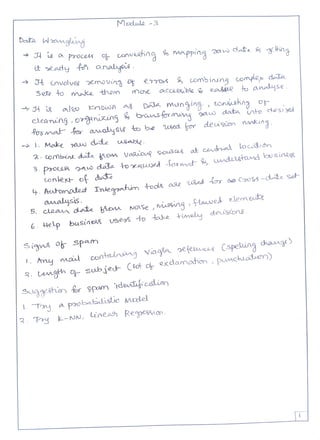 Module - 3
Data Wrangling
→ It is a process of converting & mapping raw data & getting
it ready for analysis.
→ It involves removing of errors & combining complex data
sets to make them more accessible & easier to analyse.
→ It is also known as Data munging, consisting of
cleaning, organizing & transforming raw data into desired
format for analysts to be used for decision making.
→ 1. Make raw data usable.
2. combine data from various sources at central location
3. process raw data to required format & understand business
context of data
4. Automated Integration tools are used for cross-data set
analysis.
5. clean data from Noise, missing, flawed elements
6. Help business users to take timely decisions
Signs of spam
1. Any mail containing Viagra references (spelling change)
2. Length of subject (lot of exclamation, punctuation)
Suggestion for spam identification
1. Try A probabilistic Model
2. Try K-NN, Linear Regression.
1